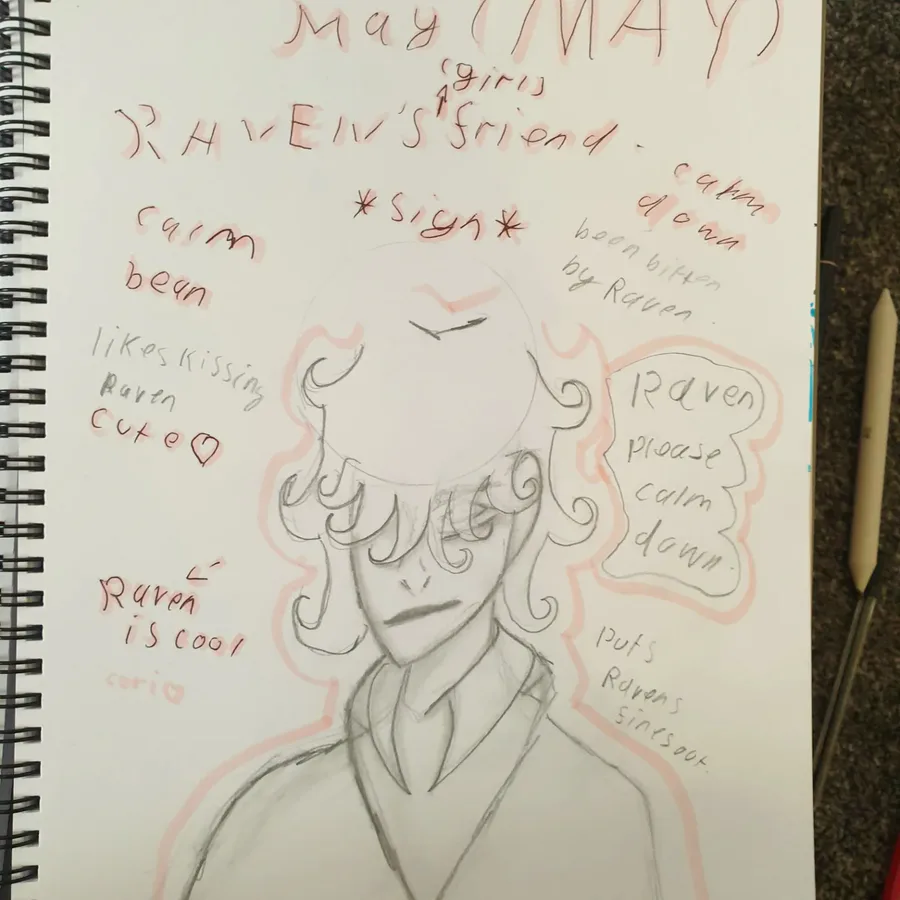 May (MAY)
(girls
RAVEN'S friend.
*Sigh*
calm
down
been bitten
by Raven.
calm
bean
likes kissing
Raven
cute
Raven
please
calm
down.
Raven
is cool
puts
Ravens
out.